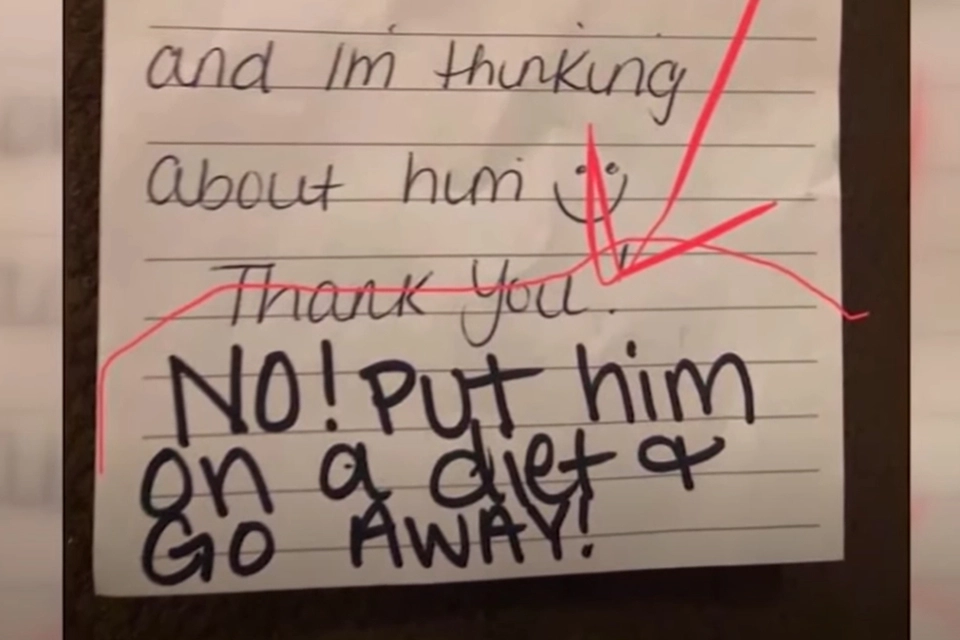 and Im thinking
about him
Thank you.
NO! PUT him
on a diet &
GO AWAY!